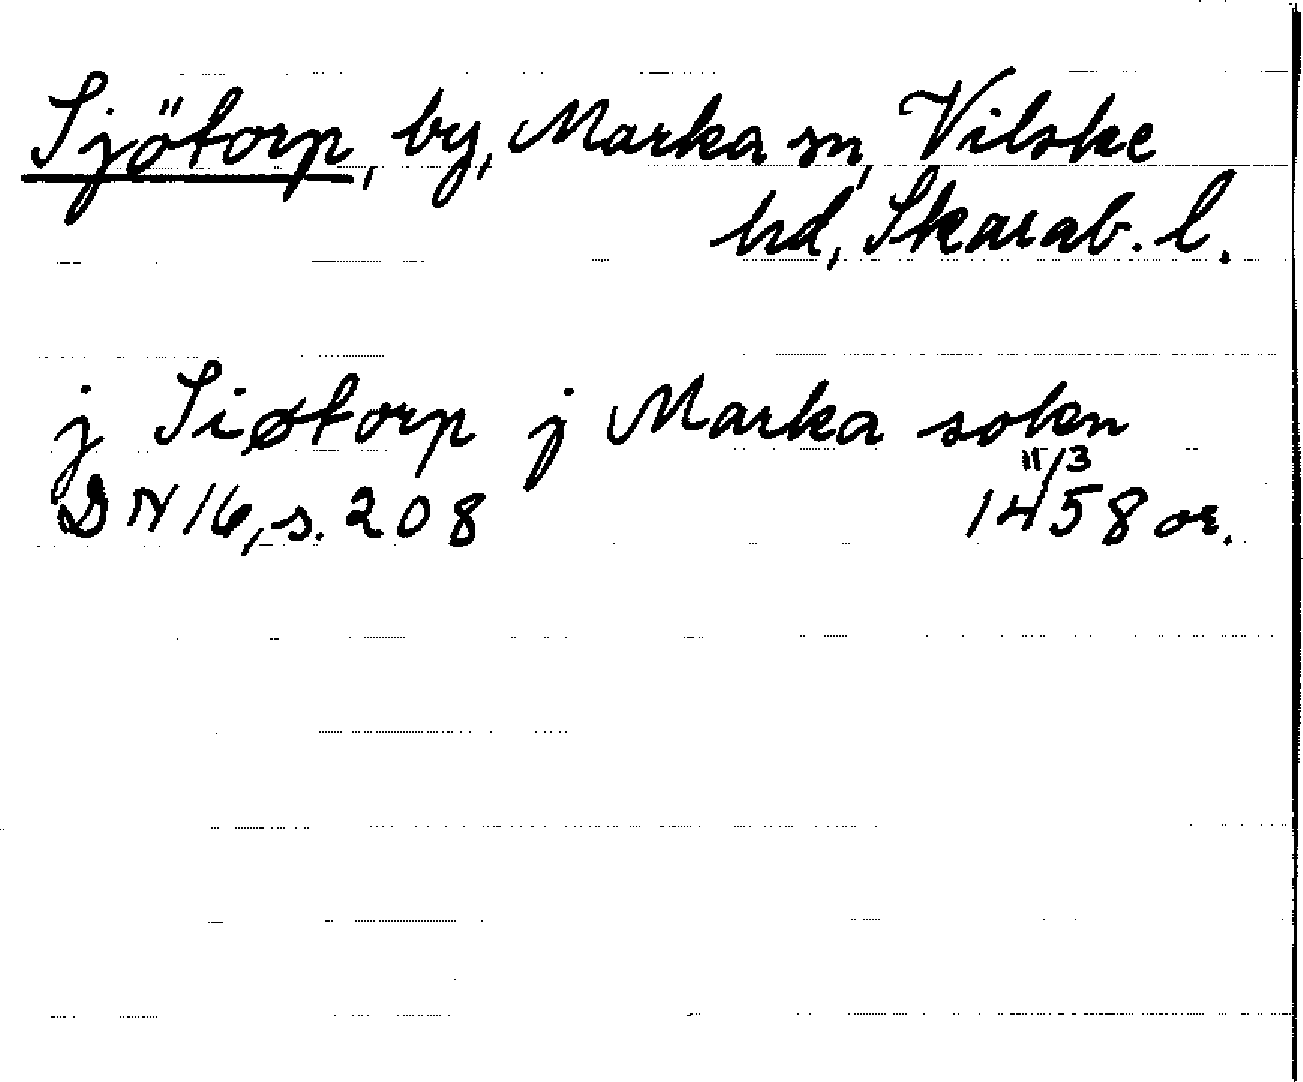 Sjötorp, by, Marka sn, Vilske
hd, Skarab. l.
j Siøtorp j Marka sokn
11/3
DN 16, s. 208 1458 or.